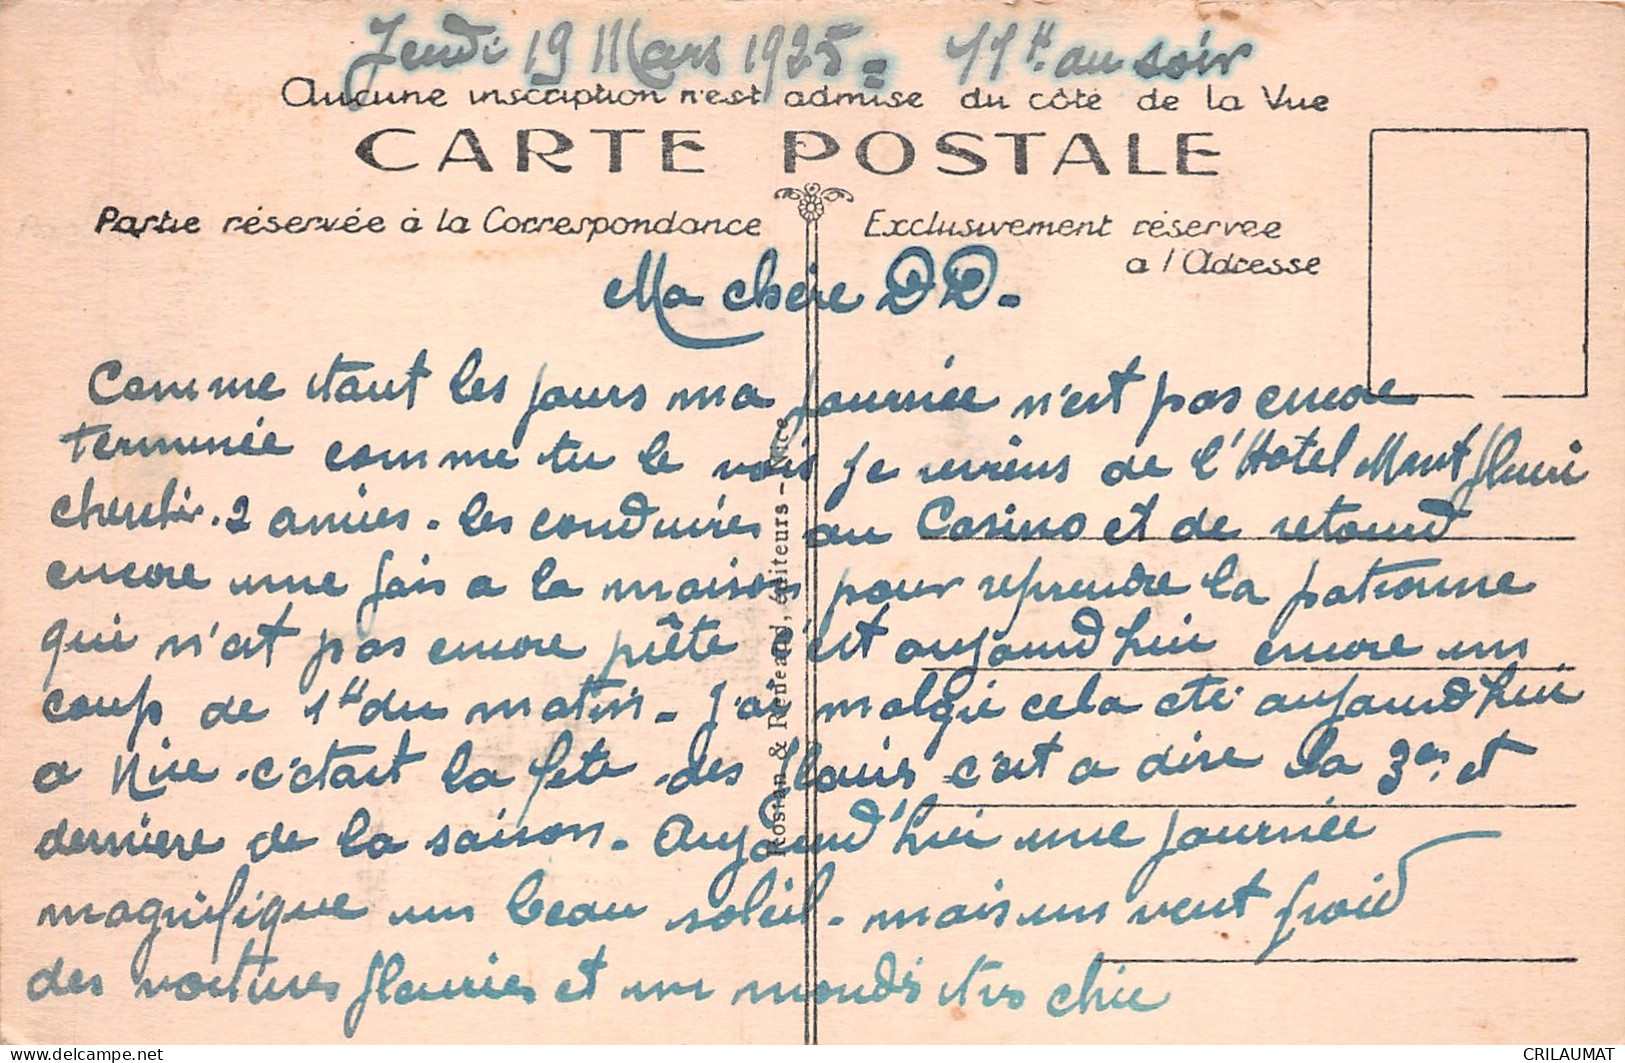 Jeudi 19 Mars 1925 = 11h. au soir
Aucune inscription n'est admise du côté de la Vue
CARTE POSTALE
Partie réservée à la Correspondance
Exclusivement réservée
a l'Adresse
Ma chère DD.
Comme tout les jours ma journée n'est pas encore
terminée comme tu le vois je reviens de l'Hotel Mont fleuri
cherchir. 2 amies. les conduires au Casino et de retourd
encore une fois a la maison pour reprendre la patronne
qui n'est pas encore prête c'est aujourd'hui encore un
coup de 1h du matin. J'ai malgré cela été aujourd'hui
a Nice. c'était la fete des fleurs c'est a dire la 3em et
derniere de la saison. Aujourd'hui une journée
magnifique un beau soleil. mais un vent froid
des voitures fleuries et un monde tres chic
Rostan & Reneaud, éditeurs - Nice
CRILAUMAT